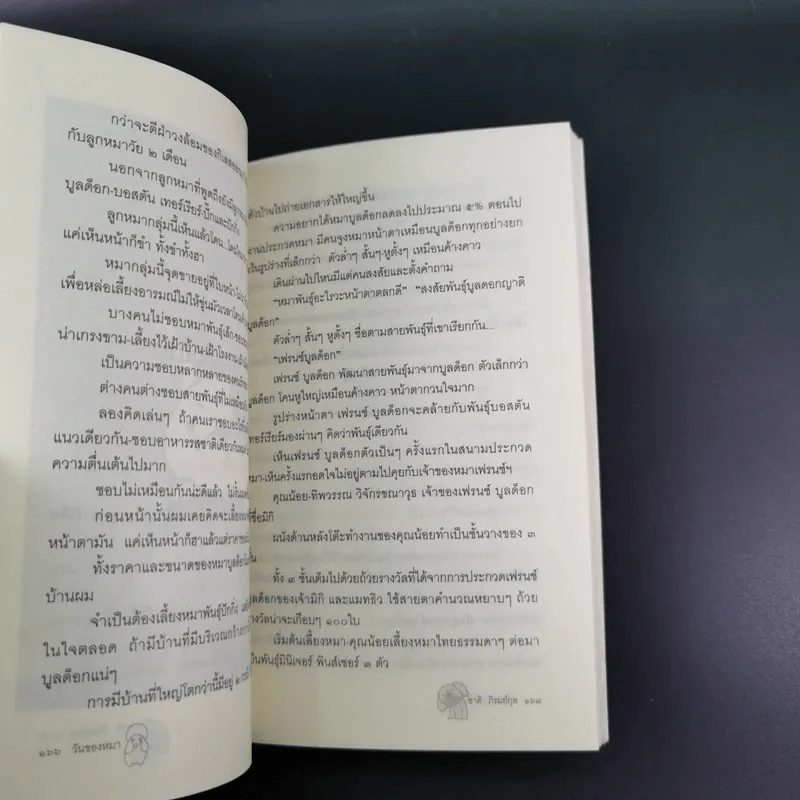 กว่าจะตีฝ่าวงล้อมของกิเลส
กับลูกหมาวัย ๒ เดือน
นอกจากลูกหมาที่พูดถึงยังมีลูก
บูลด็อก-บอสตัน เทอร์เรียร์-ปั๊กและปักกิ่ง
ลูกหมากลุ่มนี้เห็นแล้วโดน
แค่เห็นหน้าก็ขำ ทั้งขำทั้งฮา
หมากลุ่มนี้จุดขายอยู่ที่ใบหน้า
เพื่อหล่อเลี้ยงอารมณ์ไม่ให้ขุ่นมัวเวลา
บางคนไม่ชอบหมาพันธุ์เล็ก
น่าเกรงขาม-เลี้ยงไว้เฝ้าบ้าน-เฝ้าโรงงาน
เป็นความชอบหลากหลายของคน
ต่างคนต่างชอบสายพันธุ์ที่ไม่เหมือน
ลองคิดเล่นๆ ถ้าคนเราชอบอะไร
แนวเดียวกัน-ชอบอาหารรสชาติเดียวกัน
ความตื่นเต้นไปมาก
ชอบไม่เหมือนกันน่ะดีแล้ว ไม่งั้น
ก่อนหน้านั้นผมเคยคิดจะเลี้ยง
หน้าตามัน แค่เห็นหน้าก็ฮาแล้วแต่ราคาของ
ทั้งราคาและขนาดของหมาบูลด็อก
บ้านผม
จำเป็นต้องเลี้ยงหมาพันธุ์ปักกิ่ง
ในใจตลอด ถ้ามีบ้านที่มีบริเวณกว้าง
บูลด็อกแน่ๆ
การมีบ้านที่ใหญ่โตกว่านี้มีอยู่ ๒
๑๖๖ วันของหมา
ตัวบ้านไปถ่ายเอกสารให้ใหญ่ขึ้น
ความอยากได้หมาบูลด็อกลดลงไปประมาณ ๕% ตอนไป
งานประกวดหมา มีคนจูงหมาหน้าตาเหมือนบูลด็อกทุกอย่างยก
เว้นรูปร่างที่เล็กกว่า ตัวล่ำๆ สั้นๆ-หูตั้งๆ เหมือนค้างคาว
เดินผ่านไปไหนมีแต่คนสงสัยและตั้งคำถาม
"หมาพันธุ์อะไรวะหน้าตาตลกดี" "สงสัยพันธุ์บูลดอกญาติ
บูลด็อก"
ตัวล่ำๆ สั้นๆ หูตั้งๆ ชื่อตามสายพันธุ์ที่เขาเรียกกัน...
"เฟรนช์บูลด็อก"
เฟรนช์ บูลด็อก พัฒนาสายพันธุ์มาจากบูลด็อก ตัวเล็กกว่า
บูลด็อก โคนหูใหญ่เหมือนค้างคาว หน้าตากวนใจมาก
รูปร่างหน้าตา เฟรนช์ บูลด็อกจะคล้ายกับพันธุ์บอสตัน
เทอร์เรียร์มองผ่านๆ คิดว่าพันธุ์เดียวกัน
เห็นเฟรนช์ บูลด็อกตัวเป็นๆ ครั้งแรกในสนามประกวด
หมา-เห็นครั้งแรกอดใจไม่อยู่ตามไปคุยกับเจ้าของหมาเฟรนช์ฯ
คุณน้อย-ทิพวรรณ วิจักรชณาวุธ เจ้าของเฟรนช์ บูลด็อก
ชื่อมิกิ
ผนังด้านหลังโต๊ะทำงานของคุณน้อยทำเป็นชั้นวางของ ๓
ชั้น
ทั้ง ๓ ชั้นเต็มไปด้วยถ้วยรางวัลที่ได้จากการประกวดเฟรนช์
บูลด็อกของเจ้ามิกิ และแมทธิว ใช้สายตาคำนวณหยาบๆ ถ้วย
รางวัลน่าจะเกือบๆ ๑๐๐ใบ
เริ่มต้นเลี้ยงหมา-คุณน้อยเลี้ยงหมาไทยธรรมดาๆ ต่อมา
เป็นพันธุ์มินิเจอร์ พินส์เชอร์ ๓ ตัว
ชาติ ภิรมย์กุล ๑๖๗